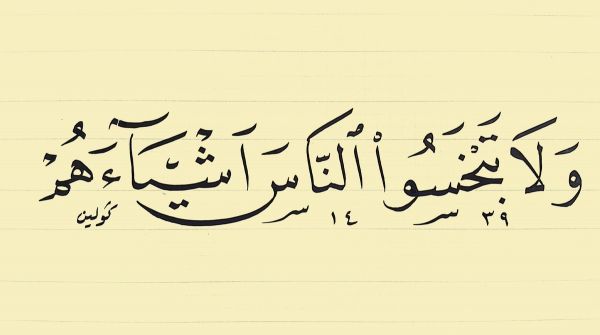 وَلَا تَبْخَسُواْ ٱلنَّاسَ اَشْيَٓاءَهُمْ
٣٩ ١٤ كولين